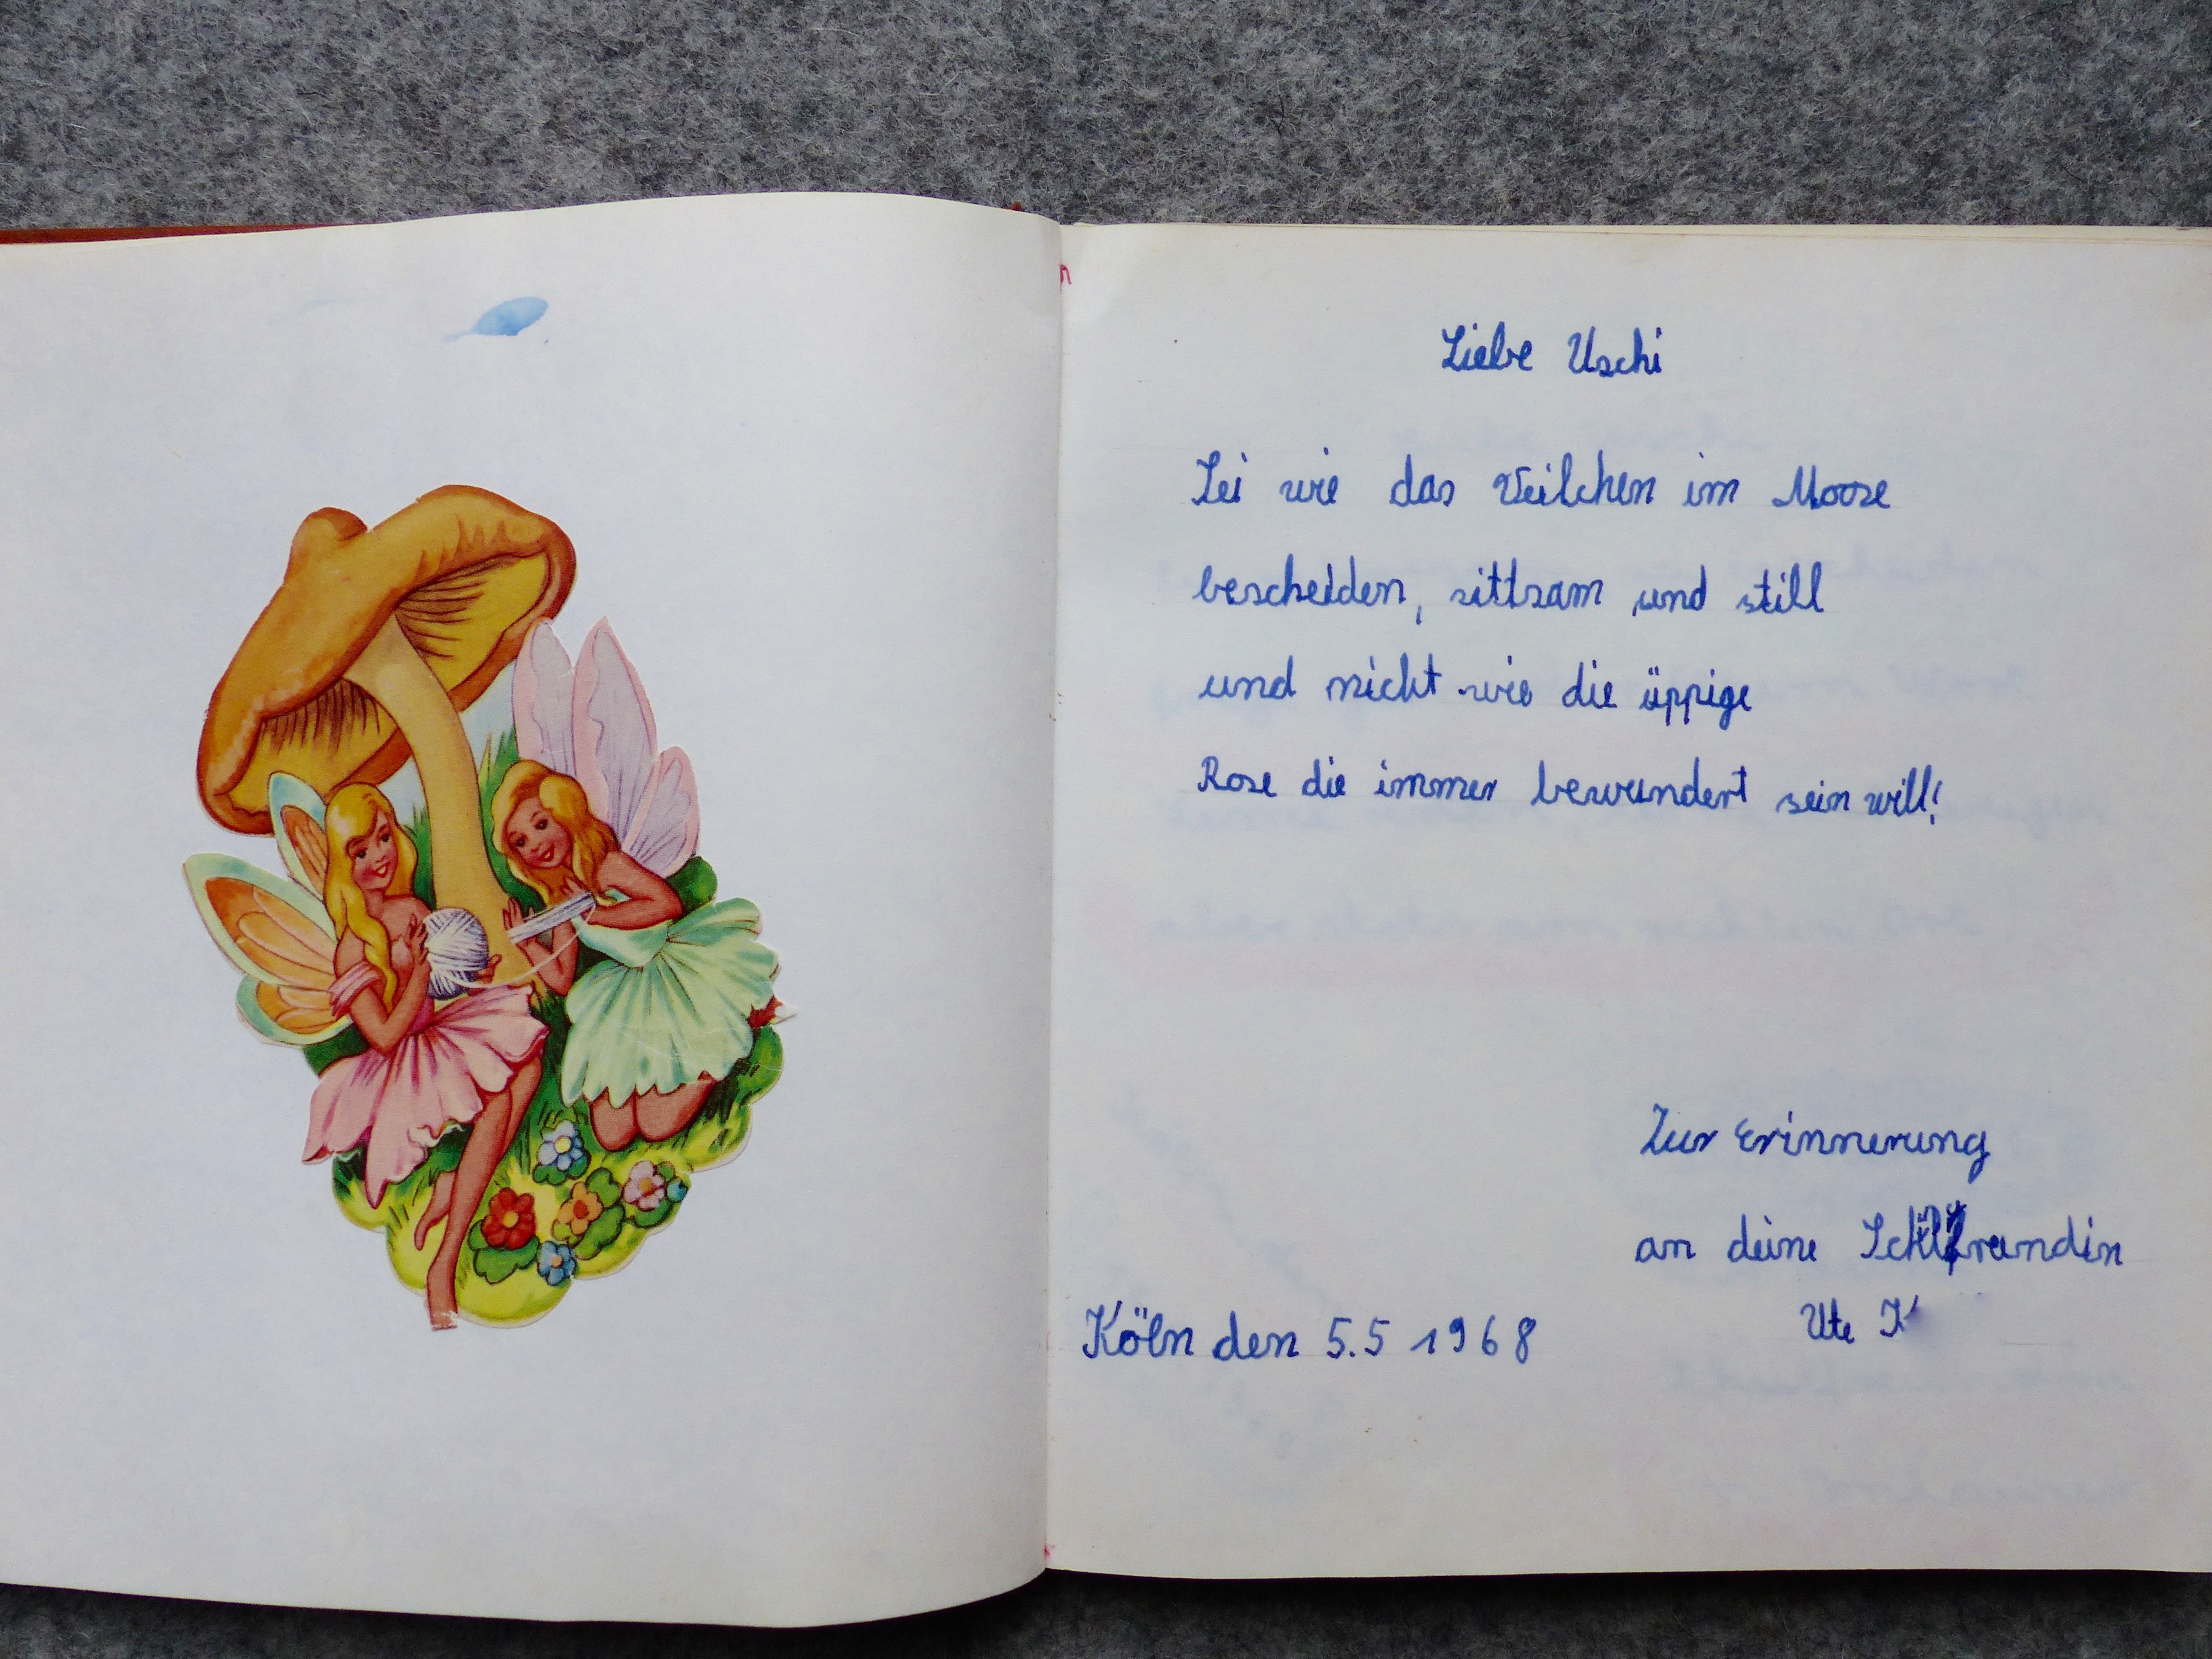 Liebe Uschi
Sei wie das Veilchen im Moose
bescheiden, sittsam und still
und nicht wie die üppige
Rose die immer bewundert sein will!
Zur Erinnerung
an deine
Ute K
Köln den 5.5 1968